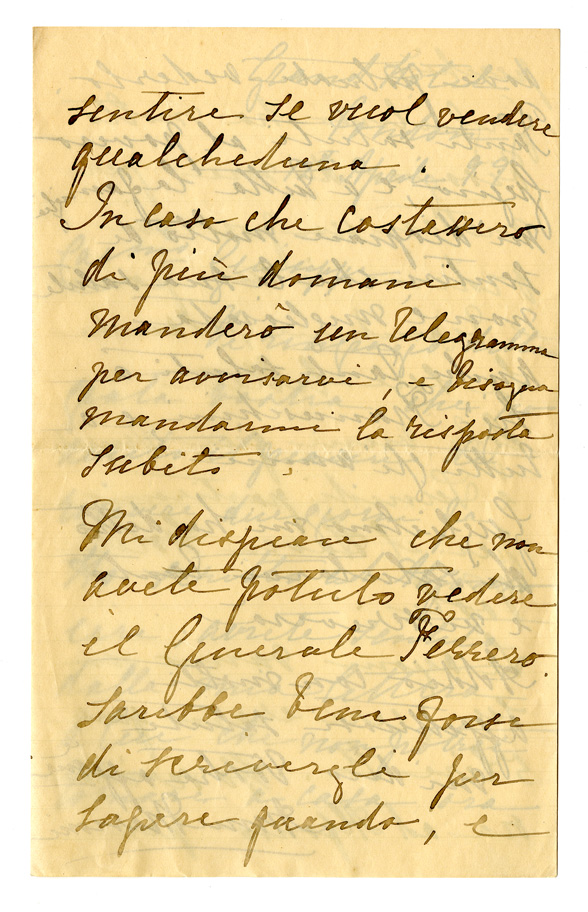 sentire se vuol vendere
qualcheduna.
In caso che costassero
di più domani
manderò un telegramma
per avvisarvi, e bisogna
mandarmi la risposta
subito.
Mi dispiace che non
avete potuto vedere
il Generale Ferrero.
Saribbe bene forse
di scrivergli per
sapere quando, e